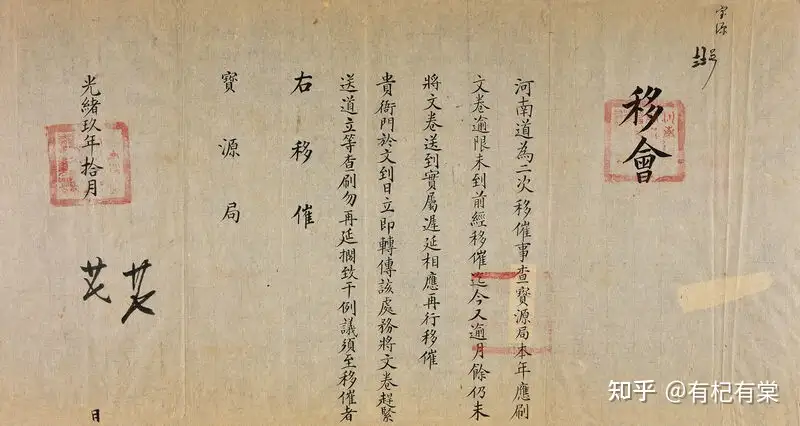 宝源
移會
河南道為二次移催事查寶源局本年應刷
文卷逾限未到前經移催迄今又逾月餘仍未
將文卷送到實屬遲延相應再行移催
貴衙門於文到日立即轉傳該處務將文卷趕緊
送道立等查刷勿再延擱致干例議須至移催者
右移催
寶源局
光緒玖年拾月 日
知乎 @有杞有棠